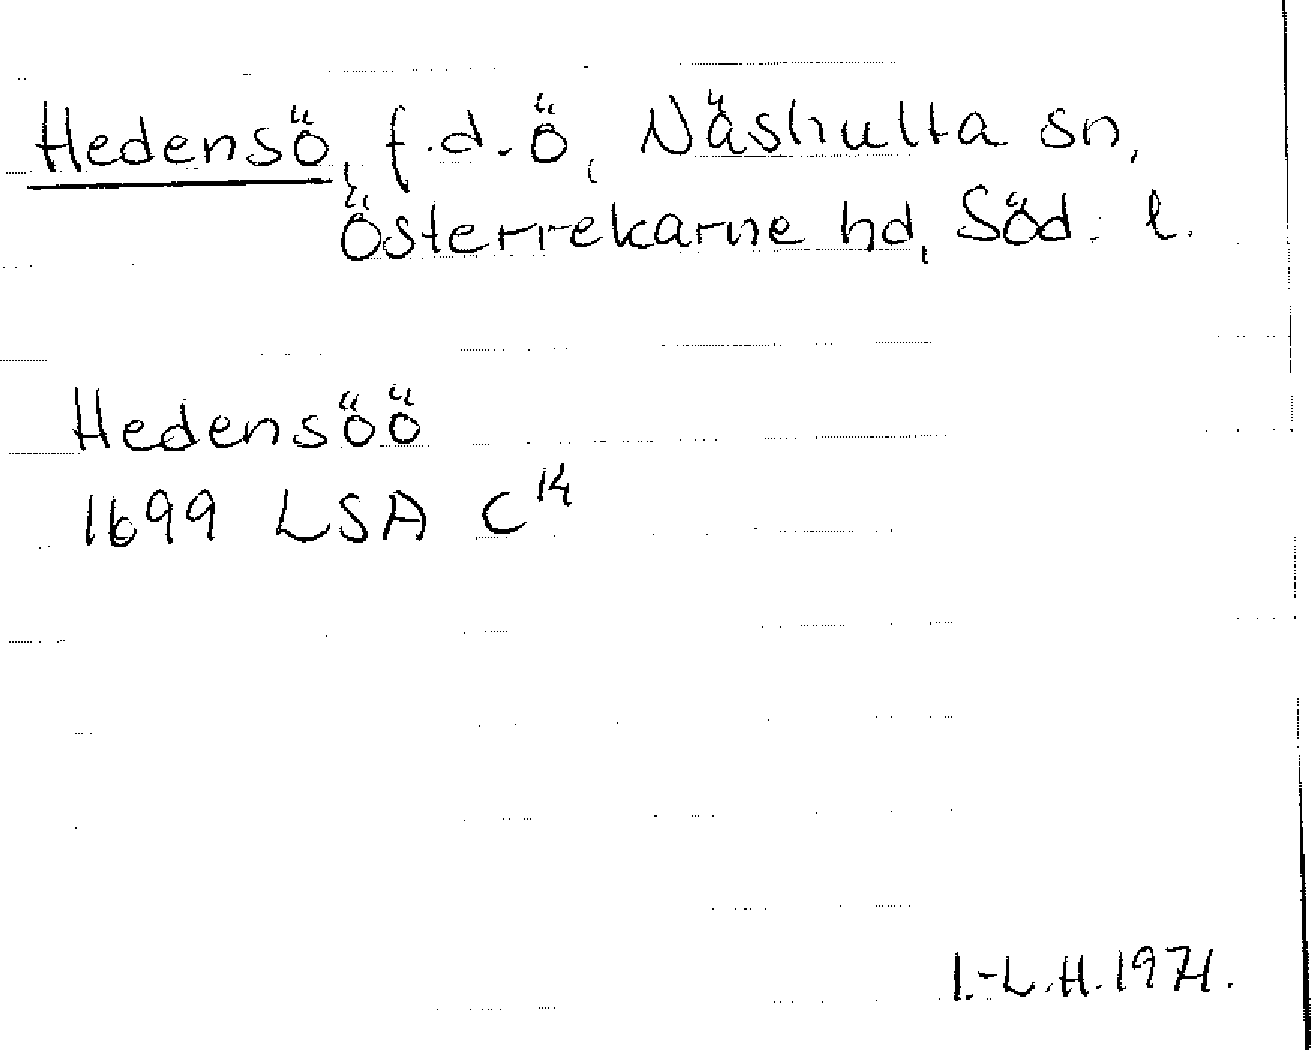 Hedensö, f.d. ö, Näshulta sn,
Österrekarne hd, Söd. l.
Hedensöö
1699 LSA C14
I.-L.H. 1971.